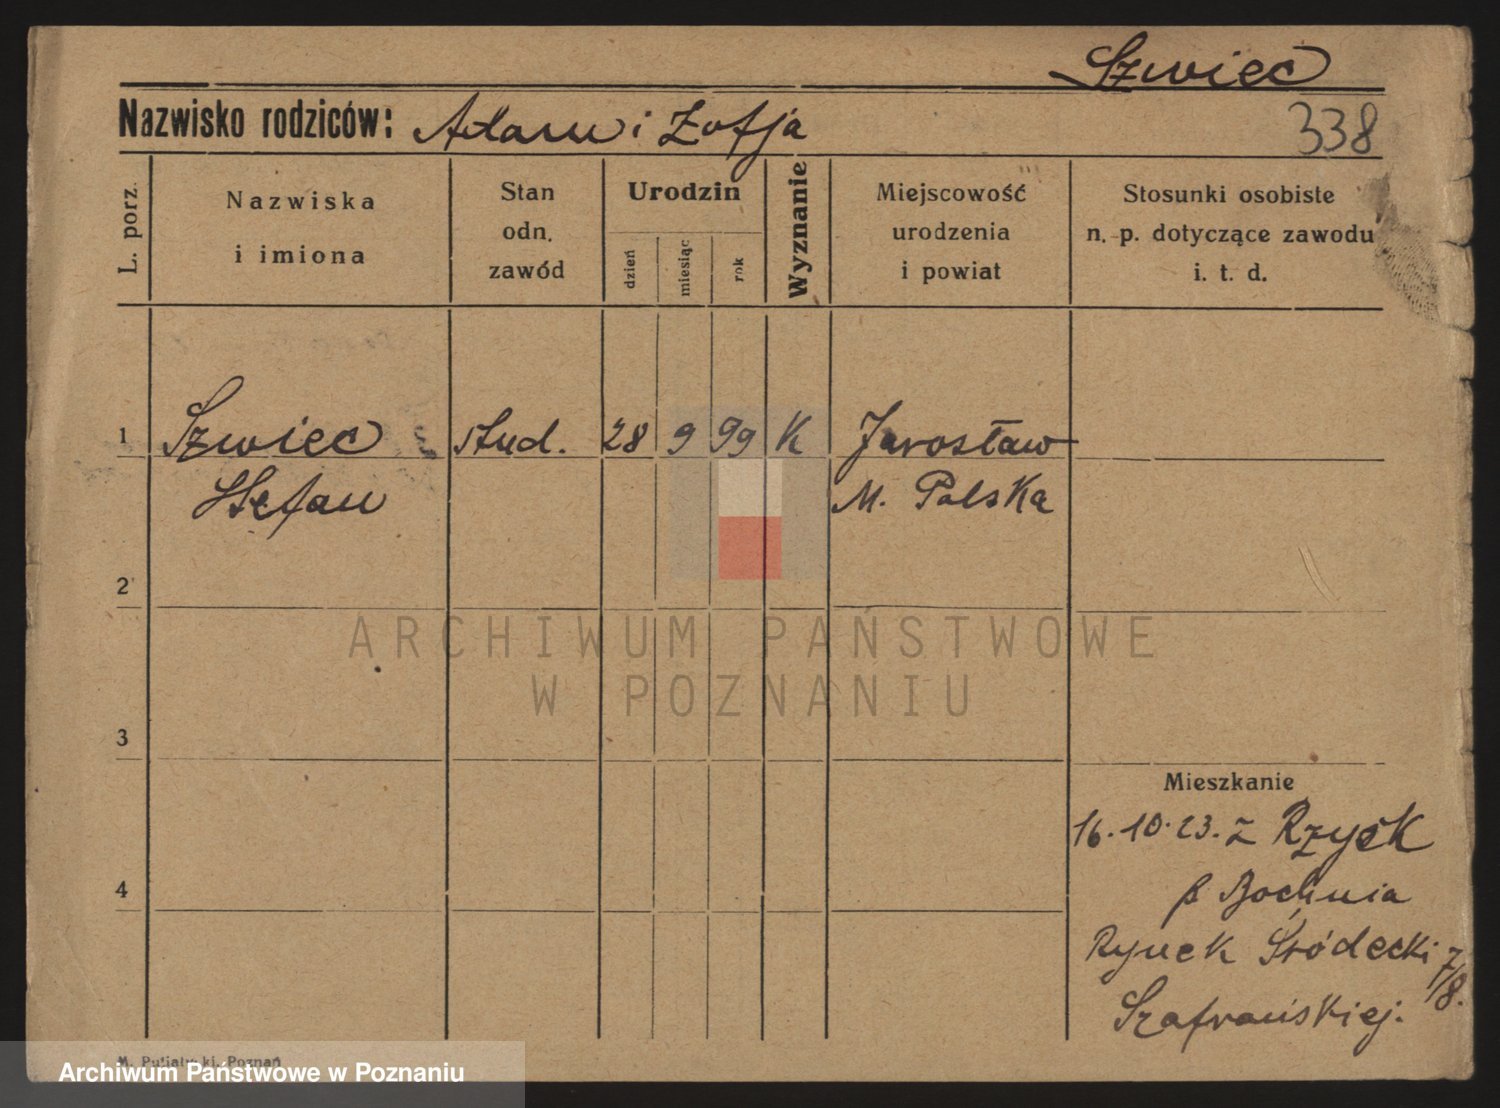 Szwiec
Nazwisko rodziców: Adam i Zofja
338
L. porz.
Nazwiska
i imiona
Stan
odn.
zawód
Urodzin
dzień
miesiąc
rok
Wyznanie
Miejscowość
urodzenia
i powiat
Stosunki osobiste
n. p. dotyczące zawodu
i. t. d.
1 Szwiec stud. 28 9 99 K Jarosław
Stefan M. Polska
2
3
4
Mieszkanie
16.10.23. z
p Bochnia
Rynek Śródecki 7/8.
Szafrańskiej.
ARCHIWUM PAŃSTWOWE
W POZNANIU
Poznań
Archiwum Państwowe w Poznaniu